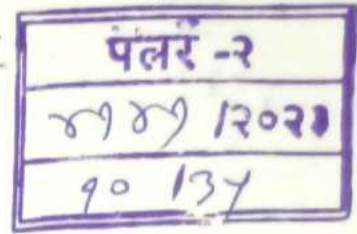 पलर -२
४१४१ /२०२१
१० /३५